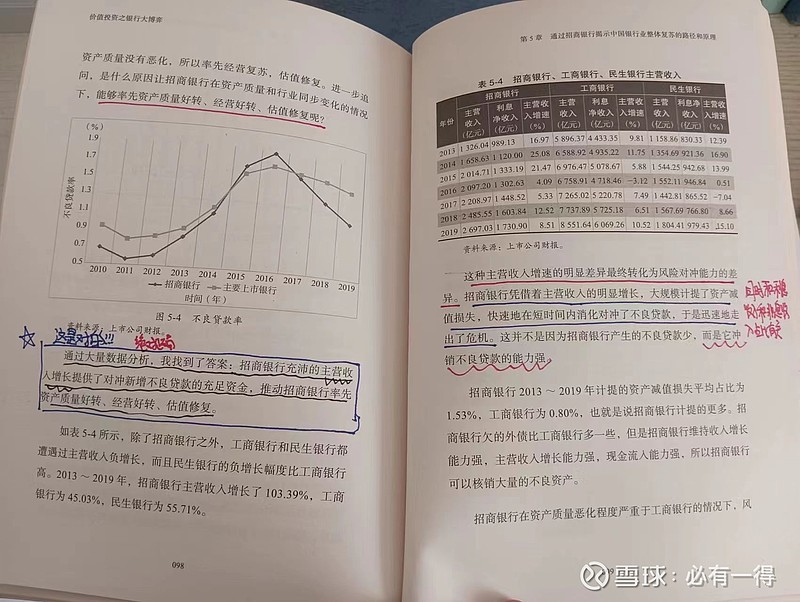 价值投资之银行大博弈
资产质量没有恶化，所以率先经营复苏，估值修复。进一步追
问，是什么原因让招商银行在资产质量和行业同步变化的情况
下，能够率先资产质量好转、经营好转、估值修复呢？
（%）
1.9
1.7
1.5
1.3
1.1
0.9
0.7
0.5
不良贷款率
2010 2011 2012 2013 2014 2015 2016 2017 2018 2019
招商银行 主要上市银行
时间（年）
图 5-4 不良贷款率
资料来源：上市公司财报。
通过大量数据分析，我找到了答案：招商银行充沛的主营收
入增长提供了对冲新增不良贷款的充足资金，推动招商银行率先
资产质量好转、经营好转、估值修复。
如表 5-4 所示，除了招商银行之外，工商银行和民生银行都
遭遇过主营收入负增长，而且民生银行的负增长幅度比工商银行
高。2013～2019 年，招商银行主营收入增长了 103.39%，工商
银行为 45.03%，民生银行为 55.71%。
098
第 5 章 通过招商银行揭示中国银行业整体复苏的路径和原理
表 5-4 招商银行、工商银行、民生银行主营收入
年份 招商银行 工商银行 民生银行
主营收入（亿元） 利息净收入（亿元） 主营收入增速（%） 主营收入（亿元） 利息净收入（亿元） 主营收入增速（%） 主营收入（亿元） 利息净收入（亿元） 主营收入增速（%）
2013 1 326.04 989.13 16.97 5 896.37 4 433.35 9.81 1 158.86 830.33 12.39
2014 1 658.63 1 120.00 25.08 6 588.92 4 935.22 11.75 1 354.69 921.36 16.90
2015 2 014.71 1 333.19 21.47 6 976.47 5 078.67 5.88 1 544.25 942.68 13.99
2016 2 097.20 1 302.63 4.09 6 758.91 4 718.46 −3.12 1 552.11 946.84 0.51
2017 2 208.97 1 448.52 5.33 7 265.02 5 220.78 7.49 1 442.81 865.52 −7.04
2018 2 485.55 1 603.84 12.52 7 737.89 5 725.18 6.51 1 567.69 766.80 8.66
2019 2 697.03 1 730.90 8.51 8 551.64 6 069.26 10.52 1 804.41 979.43 15.10
资料来源：上市公司财报。
这种主营收入增速的明显差异最终转化为风险对冲能力的差
异。招商银行凭借着主营收入的明显增长，大规模计提了资产减
值损失，快速地在短时间内消化对冲了不良贷款，于是迅速地走
出了危机。这并不是因为招商银行产生的不良贷款少，而是它冲
销不良贷款的能力强。
招商银行 2013～2019 年计提的资产减值损失平均占比为
1.53%，工商银行为 0.80%，也就是说招商银行计提的更多。招
商银行欠的外债比工商银行多一些，但是招商银行维持收入增长
能力强，主营收入增长能力强，现金流入能力强，所以招商银行
可以核销大量的不良资产。
招商银行在资产质量恶化程度严重于工商银行的情况下，风
雪球：必有一得